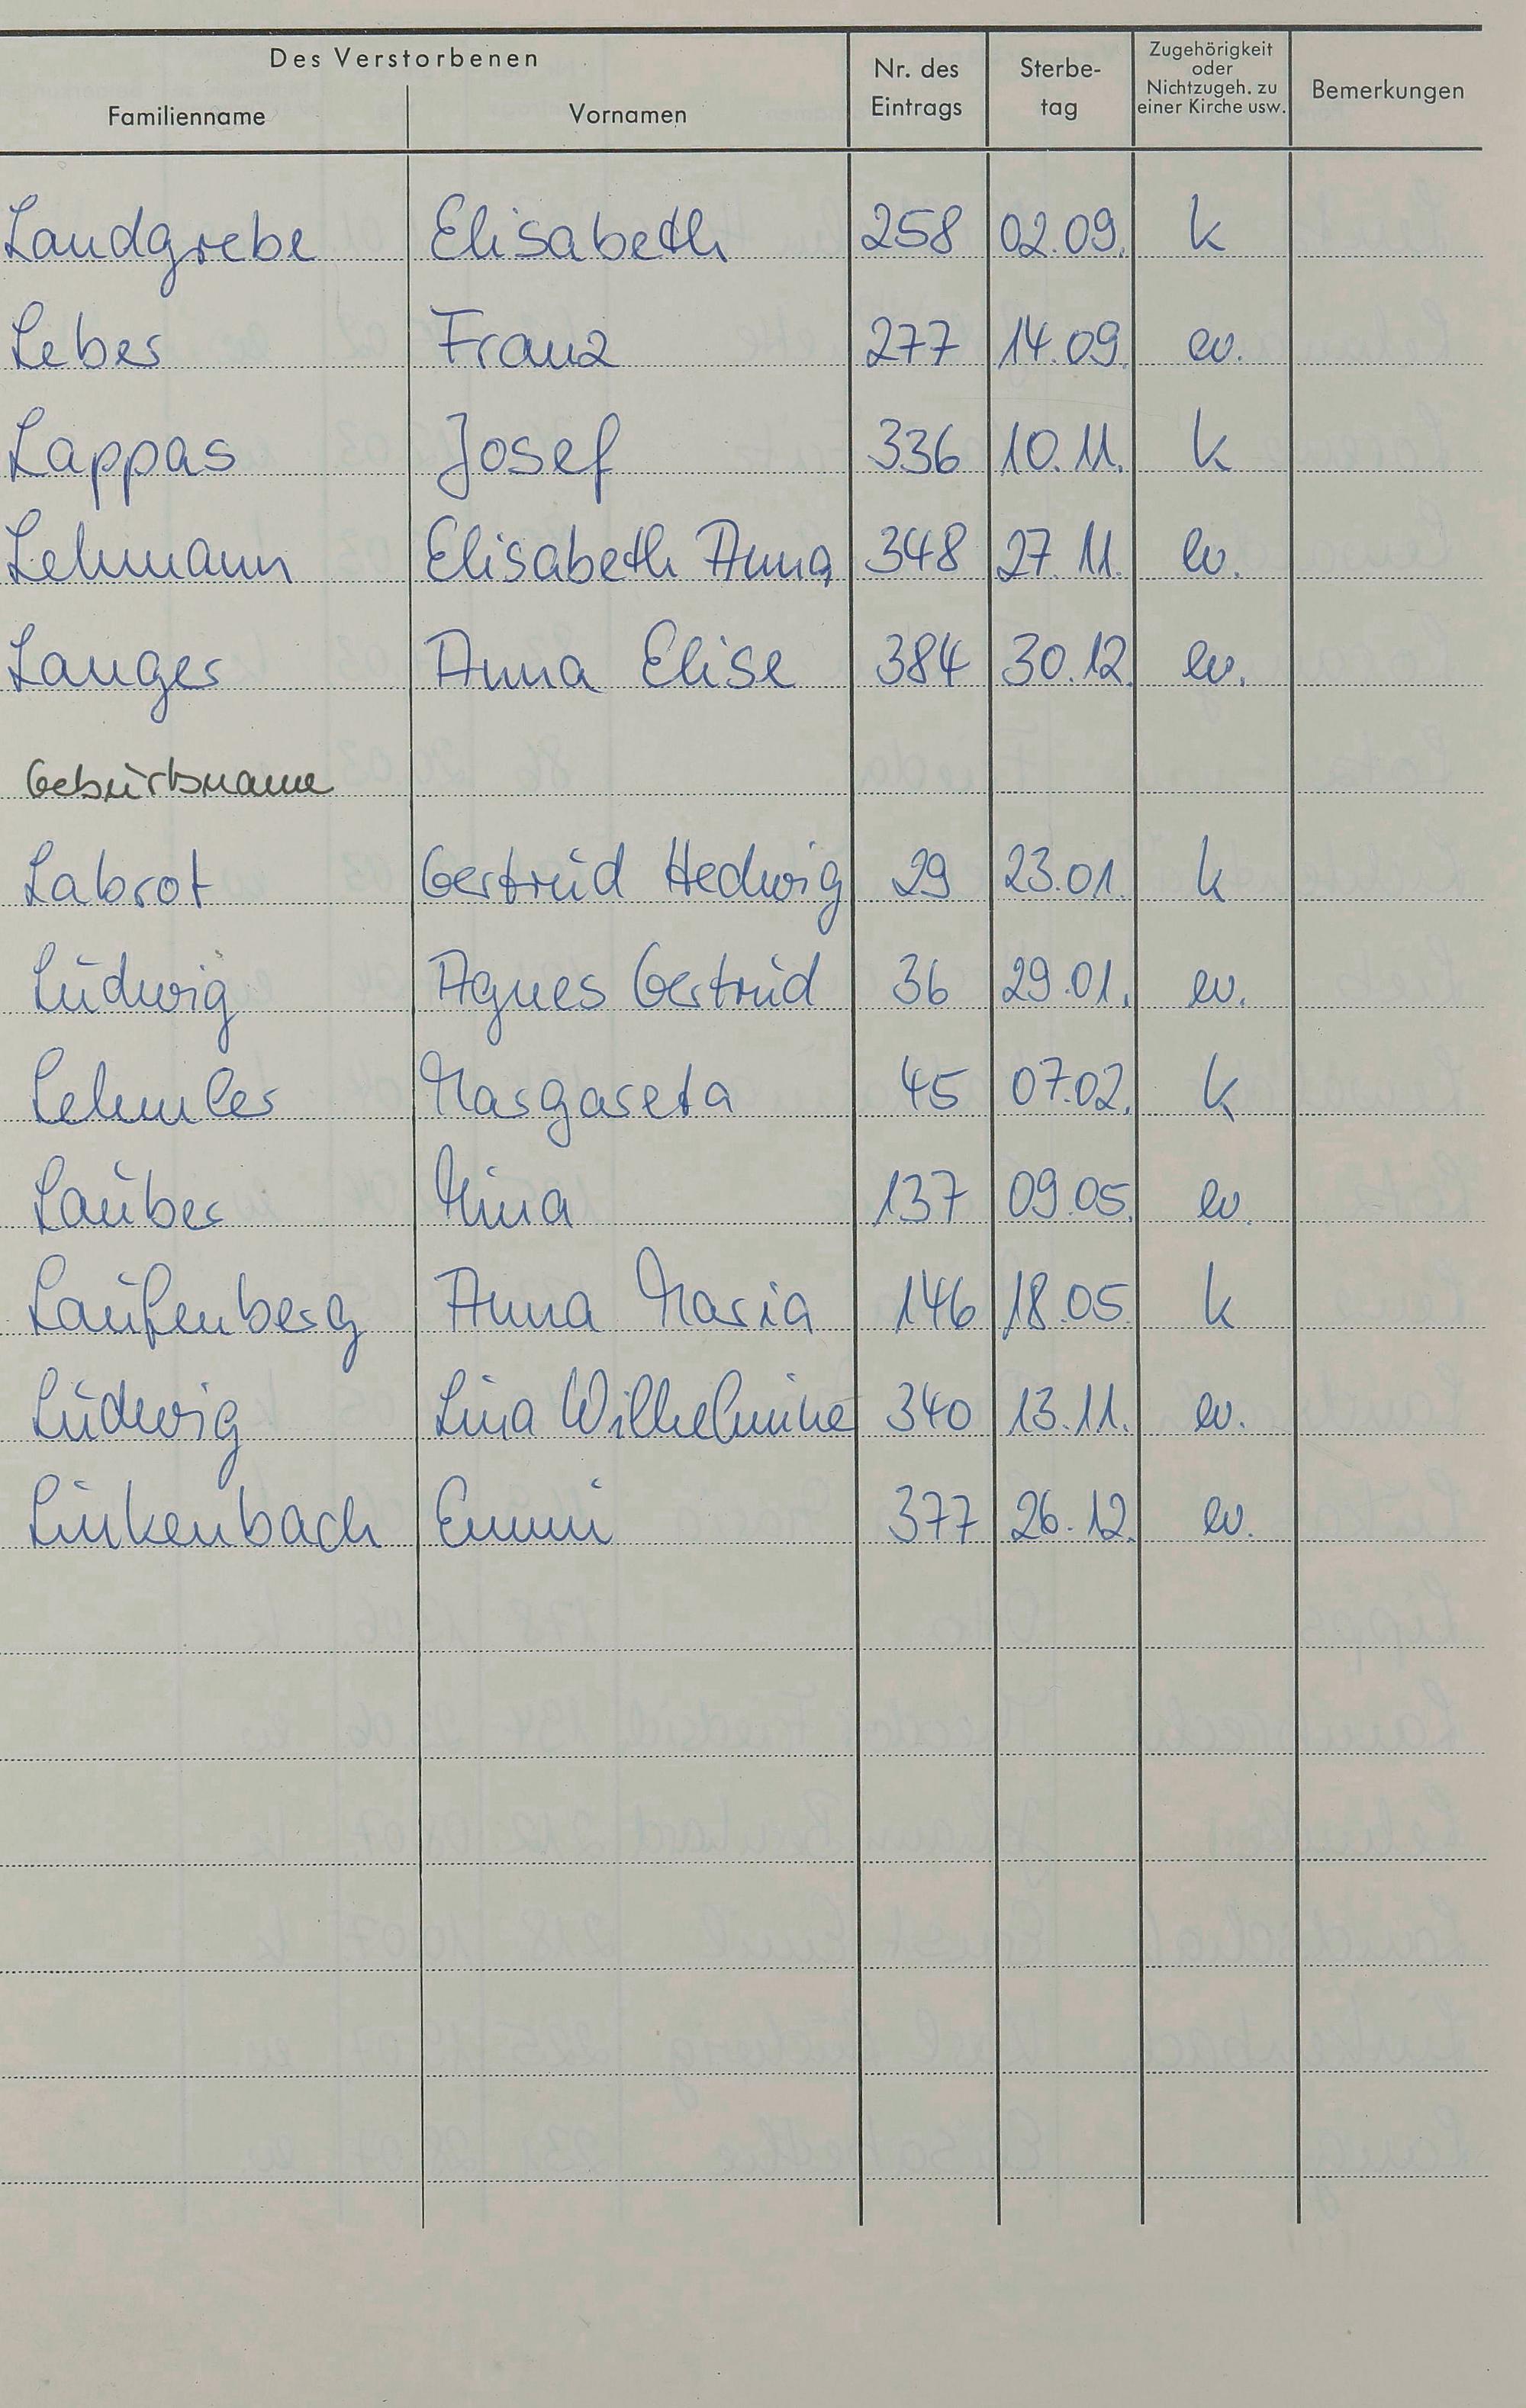 Des Verstorbenen
Familienname Vornamen Nr. des Eintrags Sterbe-tag Zugehörigkeit oder Nichtzugeh. zu einer Kirche usw. Bemerkungen
Landgrebe Elisabeth 258 02.09. k
Leber Franz 277 14.09. ev.
Lappas Josef 336 10.11. k
Lehmann Elisabeth Anna 348 27.11. ev.
Langer Anna Elise 384 30.12. ev.
Geburtsname
Labrot Gertrud Hedwig 29 23.01. k
Ludwig Agnes Gertrud 36 29.01. ev.
Lehmler Margareta 45 07.02. k
Lauber Mina 137 09.05. ev.
Laufenberg Anna Maria 146 18.05. k
Ludwig Lina Wilhelmine 340 13.11. ev.
Linkenbach Emmi 377 26.12. ev.